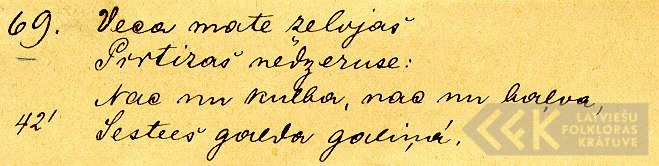 69. Veca mate zelojas
Pirtizas nedzeruse:
Nac nu kulba, nac nu balva,
42' Sestees galda galiņá.
LATVIEŠU
FOLKLORAS
KRĀTUVE